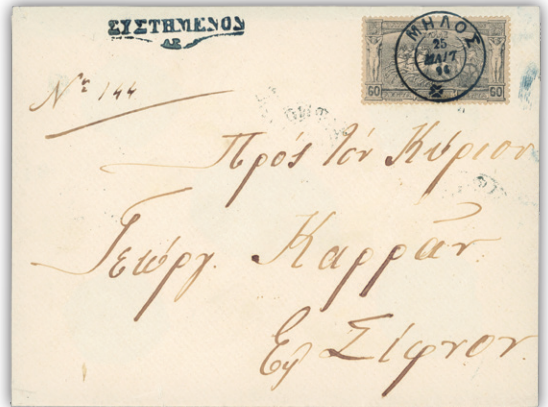 ΣΥΣΤΗΜΕΝΟΝ
ΜΗΛΟΣ
25
ΜΑΪΤ
96
60 60
Νº 144
Πρὸς τὸν Κύριον
Γεώργ. Καρρᾶν
Εἰς Σίφνον.